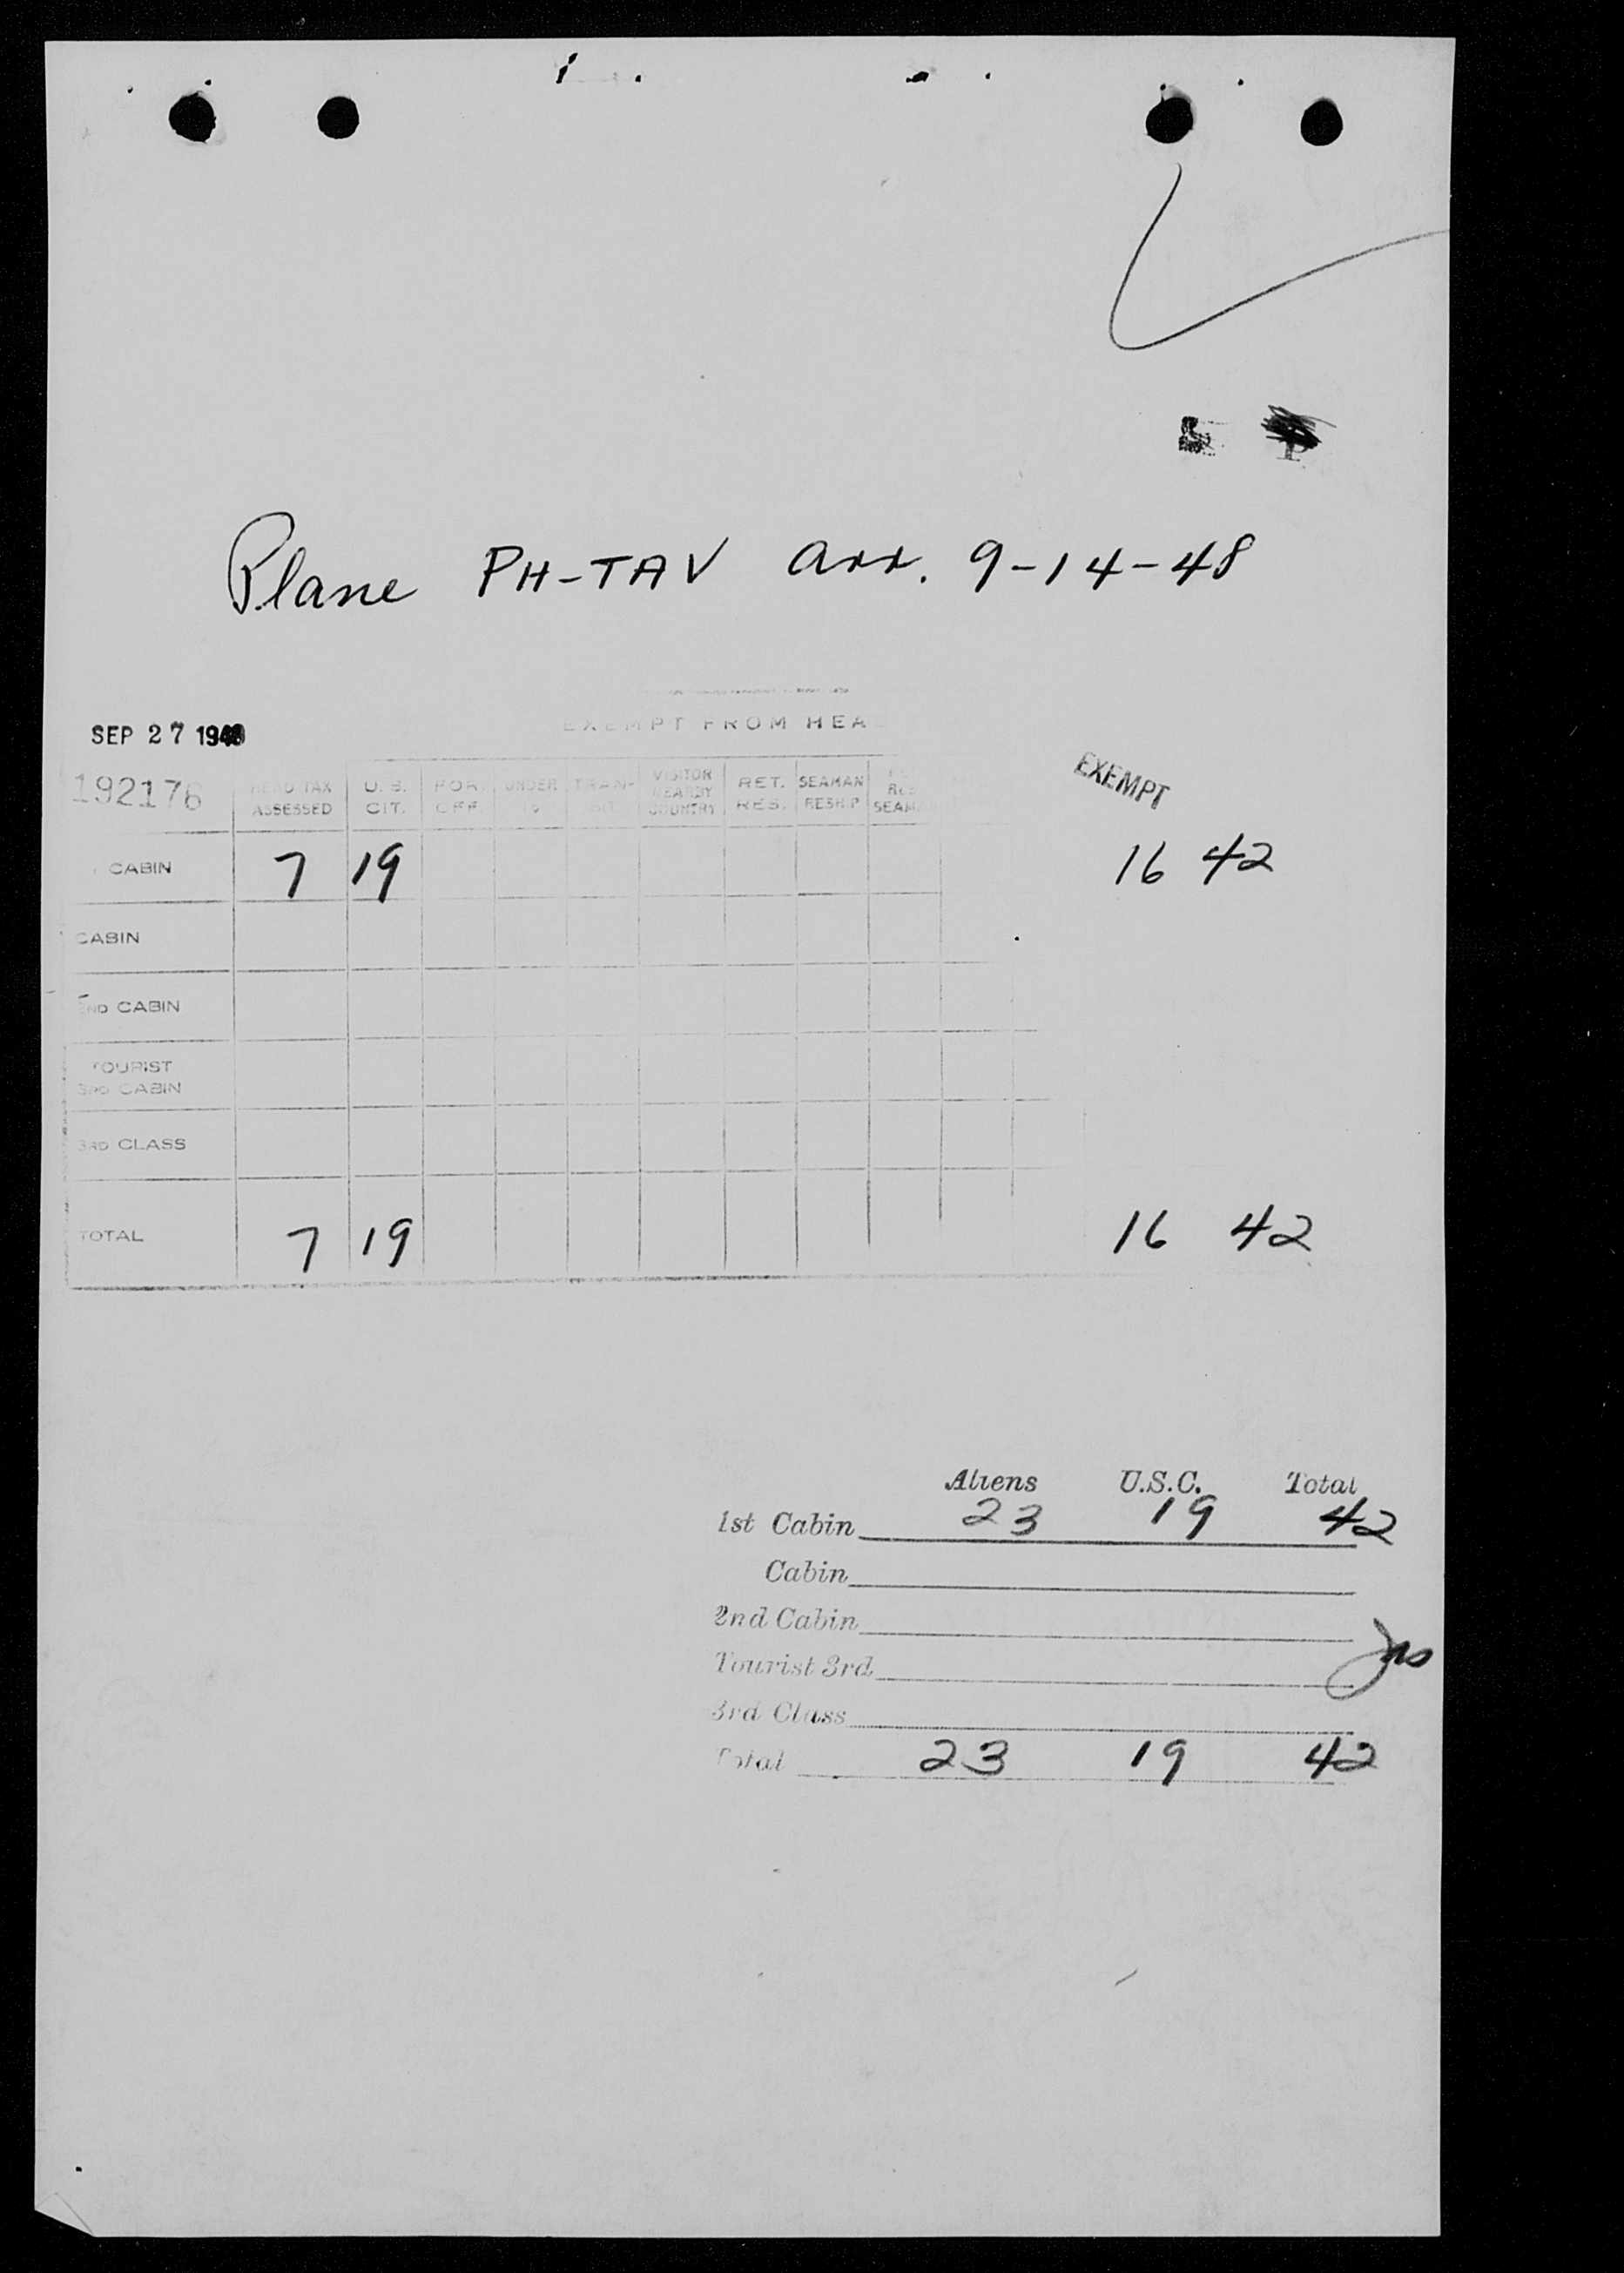 Plane PH-TAV arr. 9-14-48
EXEMPT FROM HEA
SEP 27 1948
192176
HEAD TAX ASSESSED U.S. CIT. FOR. OFF. UNDER 16 TRAN-SIT VISITOR NEARBY COUNTRY RET. RES. SEAMAN RESHIP SEAM EXEMPT
CABIN 7 19 16 42
CABIN
2ND CABIN
TOURIST
3RD CABIN
3RD CLASS
TOTAL 7 19 16 42
Aliens U.S.C. Total
1st Cabin 23 19 42
Cabin
2nd Cabin
Tourist 3rd
3rd Class
Total 23 19 42